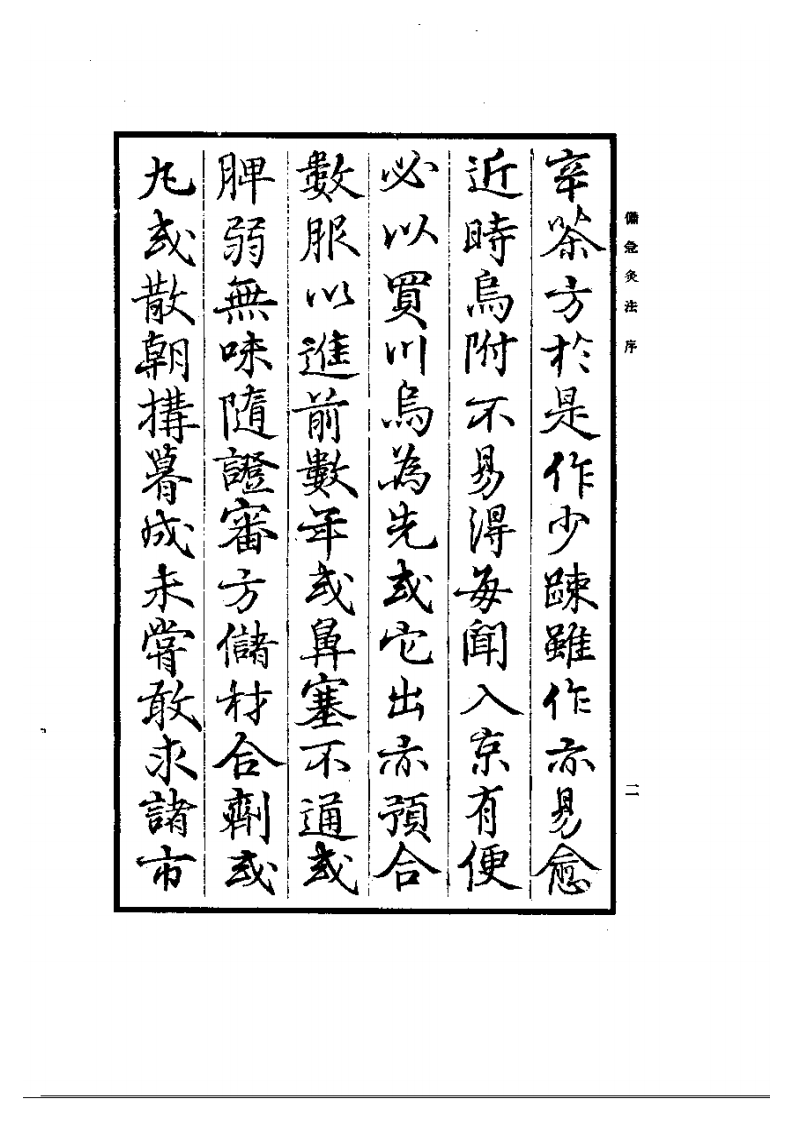 備急灸法 序
二
辛茶方於是作少踈雖作亦易愈
近時烏附不易得每聞入京有便
必以買川烏為先或它出亦預合
數服以進前數年或鼻塞不通或
脾弱無味隨證審方儲材合劑或
丸或散朝搆暮成未嘗敢求諸市